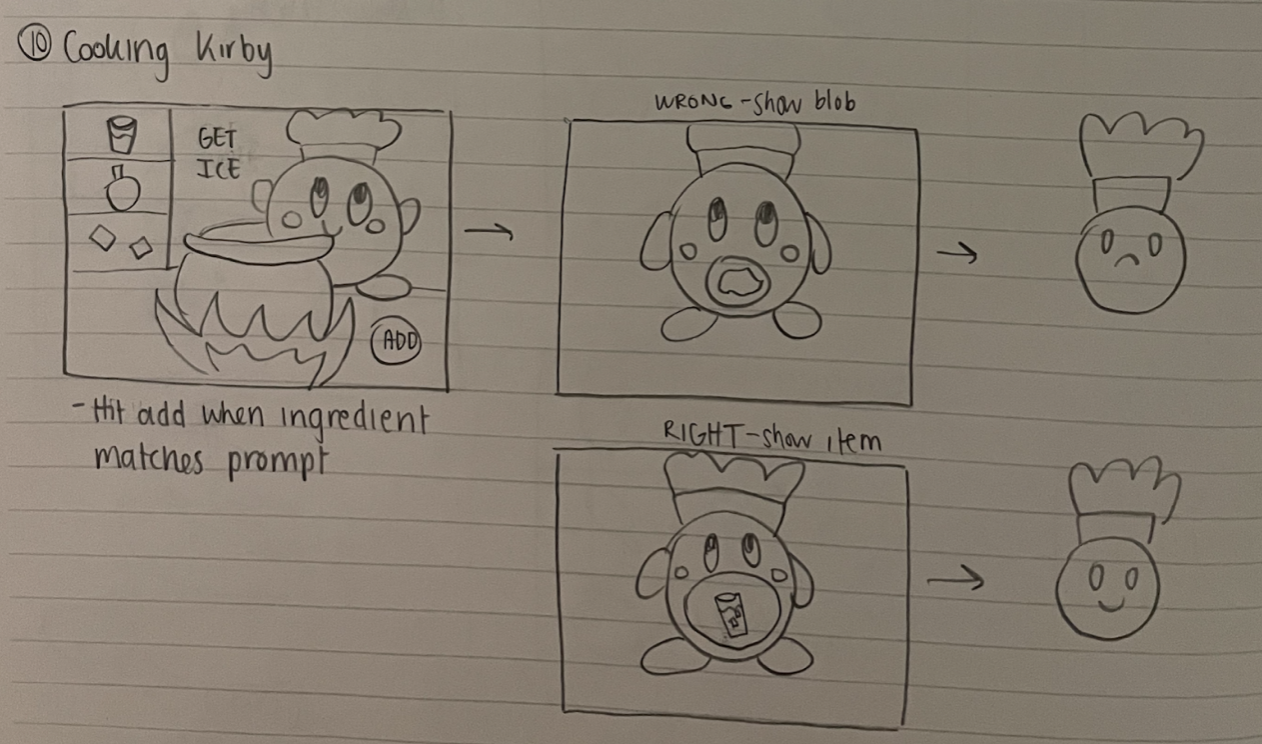 ⑩ Cooking Kirby
GET
ICE
ADD
-Hit add when ingredient
matches prompt
WRONG-show blob
RIGHT-show item